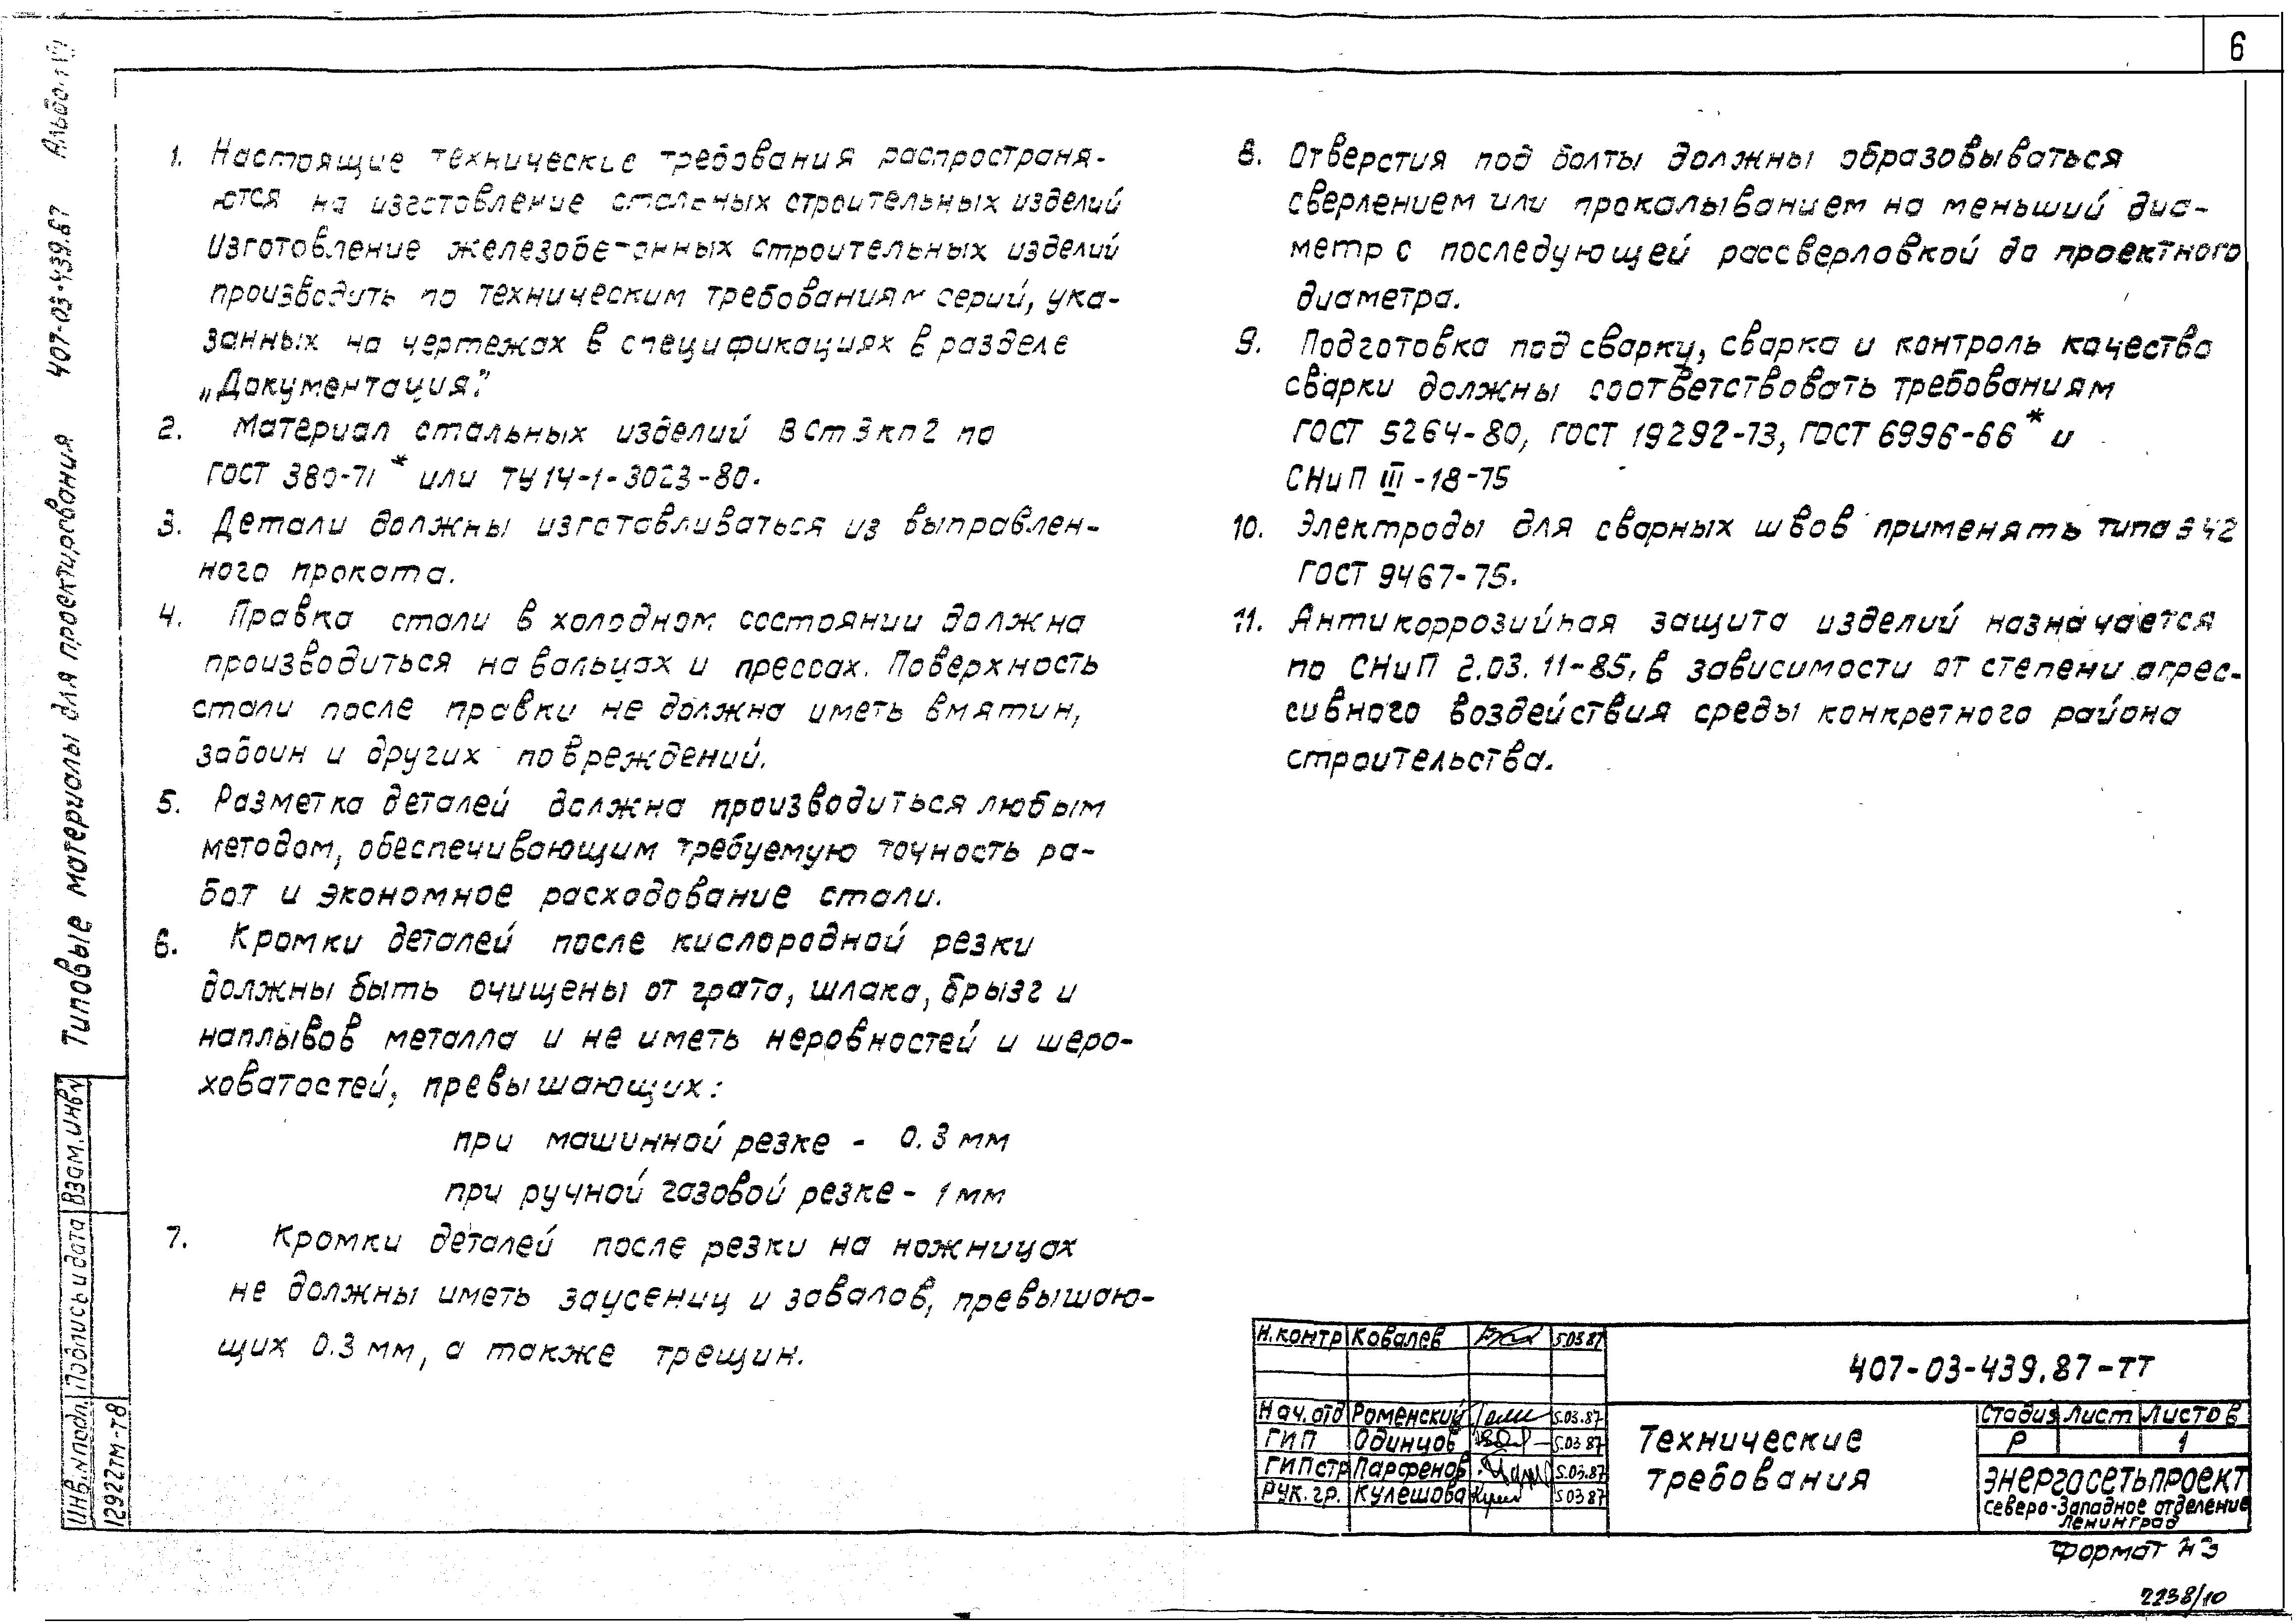 6
Типовые материалы для проектирования 407-03-439.87 Альбом
1. Настоящие технические требования распространя-
ются на изготовление стальных строительных изделий
Изготовление железобетонных строительных изделий
производить по техническим требованиям серий, ука-
занных на чертежах в спецификациях в разделе
„Документация".
2. Материал стальных изделий ВСт3кп2 по
ГОСТ 380-71* или ТУ14-1-3023-80.
3. Детали должны изготавливаться из выправлен-
ного проката.
4. Правка стали в холодном состоянии должна
производиться на вальцах и прессах. Поверхность
стали после правки не должна иметь вмятин,
забоин и других повреждений.
5. Разметка деталей должна производиться любым
методом, обеспечивающим требуемую точность ра-
бот и экономное расходование стали.
6. Кромки деталей после кислородной резки
должны быть очищены от грата, шлака, брызг и
наплывов металла и не иметь неровностей и шеро-
ховатостей, превышающих:
при машинной резке - 0.3 мм
при ручной газовой резке - 1 мм
7. Кромки деталей после резки на ножницах
не должны иметь заусениц и завалов, превышаю-
щих 0.3 мм, а также трещин.
8. Отверстия под болты должны образовываться
сверлением или прокалыванием на меньший диа-
метр с последующей рассверловкой до проектного
диаметра.
9. Подготовка под сварку, сварка и контроль качества
сварки должны соответствовать требованиям
ГОСТ 5264-80, ГОСТ 19292-73, ГОСТ 6996-66* и
СНиП III-18-75
10. Электроды для сварных швов применять типа Э42
ГОСТ 9467-75.
11. Антикоррозийная защита изделий назначается
по СНиП 2.03.11-85, в зависимости от степени агрес-
сивного воздействия среды конкретного района
строительства.
Инв.№подл. Подпись и дата Взам.инв.№
12922тм-т8
Н.контр Ковалев 5.03.87
Нач.отд Роменский 5.03.87
ГИП Одинцов 5.03.87
ГИПстр Парфенов 5.03.87
Рук.гр. Кулешова 5.03.87
407-03-439.87-ТТ
Технические
требования
Стадия Лист Листов
Р 1
ЭНЕРГОСЕТЬПРОЕКТ
Северо-Западное отделение
Ленинград
Формат А3
2238/10